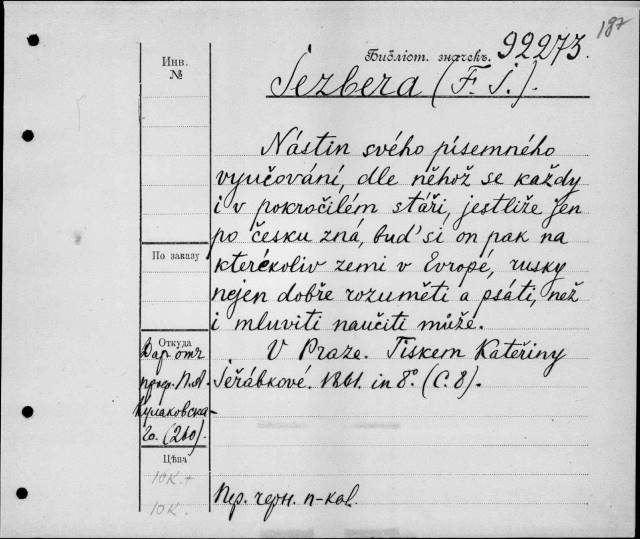 187
Библіот. значекъ. 92273.
Инв.
№
Jezbera (F. J.).
Nástin svého písemného
vyučování, dle něhož se každy
i v pokročilém stáři, jestliže jen
po česku zná, buď si on pak na
kterékoliv zemi v Evropé, rusky
nejen dobře rozuměti a psáti, než
i mluviti naučiti může.
V Praze. Tiskem Kateřiny
Jeřábkové. 1861. in 8°. (C. 8).
По заказу
Откуда
Дар отъ
проф. П.А.
Кулаковска-
го. (260).
Цѣна
10к. +
10к.
Пер. черн. п-кол.